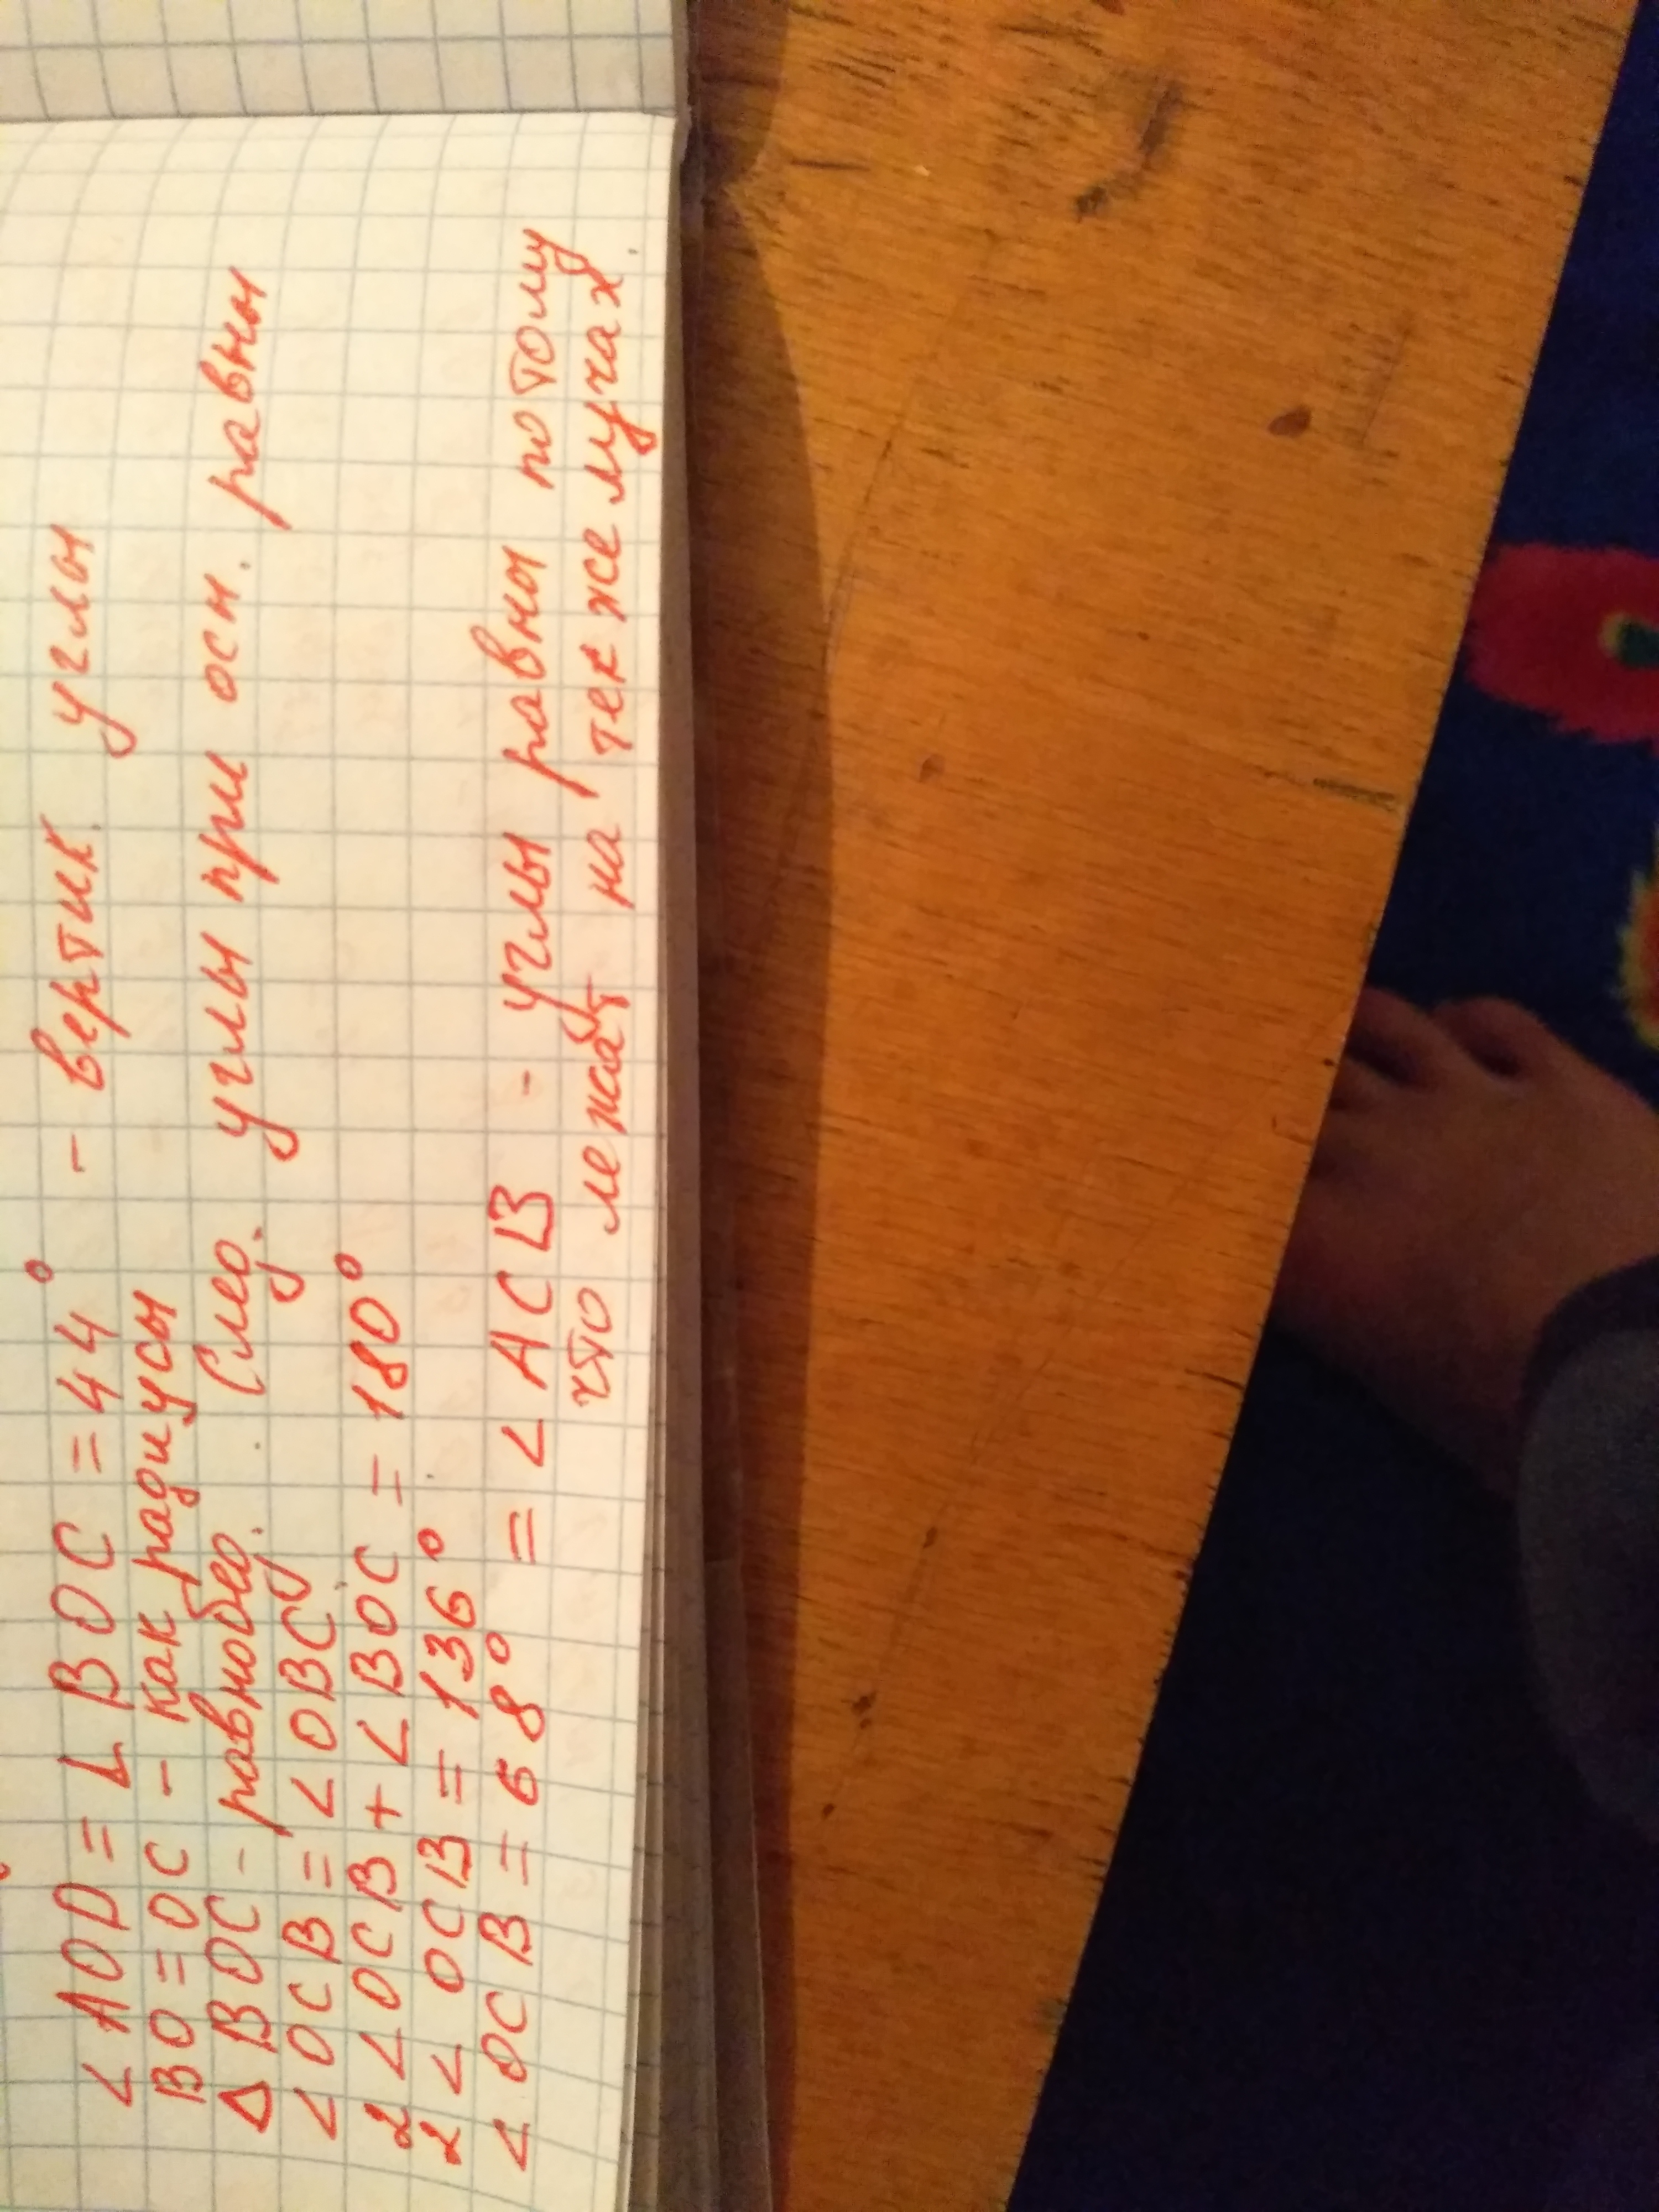 ∠AOD = ∠BOC = 44° - вертик. углы
BO = OC - как радиусы
Δ BOC - равнобед. След. углы при осн. равны
∠OCB = ∠OBC
2∠OCB + ∠BOC = 180°
2∠OCB = 136°
∠OCB = 68° = ∠ACB - углы равны потому
что лежат на тех же лучах.